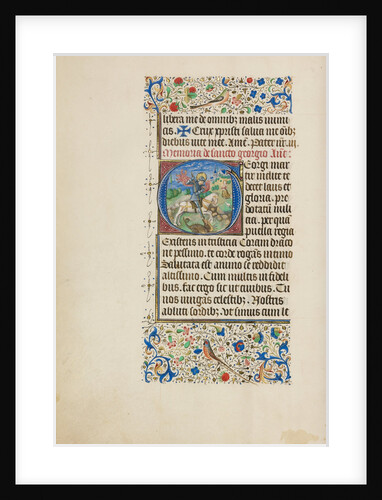 libera me de omnibz malis mimi
cis ✠ Crux xpristi salua me oibz
diebus vite mee. Ame. Pater nr.
Memoria de sancto georgio Ane.
Georgi mar
tir inclite te
decet laus et
gloria. pre
dotatu mili
cia. per qua
puella regia
Existens in tristicia Coram draco
ne pessimo. te corde rogam intimo
Saluata est animo se reddidit
altissimo. Cum multis in fideli
bus. fac ergo sic ut ciuibus. Tu
nos iungas celestibz. Nostris
ablut sordibz. ut simus cum le